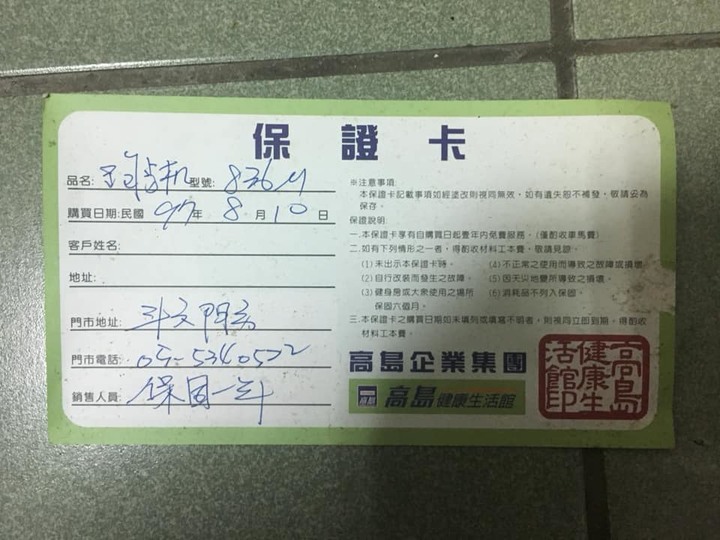 保證卡
品名: 型號: 836M
購買日期:民國 97年 8月10日
客戶姓名:
地址:
門市地址: 斗六門市
門市電話: 05-5340522
銷售人員: 保固一年
※注意事項:
本保證卡記載事項如經塗改則視同無效,如有遺失恕不補發,敬請妥為
保存。
保證說明:
一.本保證卡享有自購買日起壹年內免費服務。(僅酌收車馬費)
二.如有下列情形之一者,得酌收材料工本費,敬請見諒。
(1)未出示本保證卡時。 (4)不正常之使用而導致之故障或損壞
(2)自行改裝而發生之故障。 (5)因天災地變所導致之損壞。
(3)健身房或大衆使用之場所 (6)消耗品不列入保固。
保固六個月。
三.本保證卡之購買日期如未填列或填寫不明者,則視同立即到期,得酌收
材料工本費。
高島企業集團
高島健康生活館
高島健康生活館印